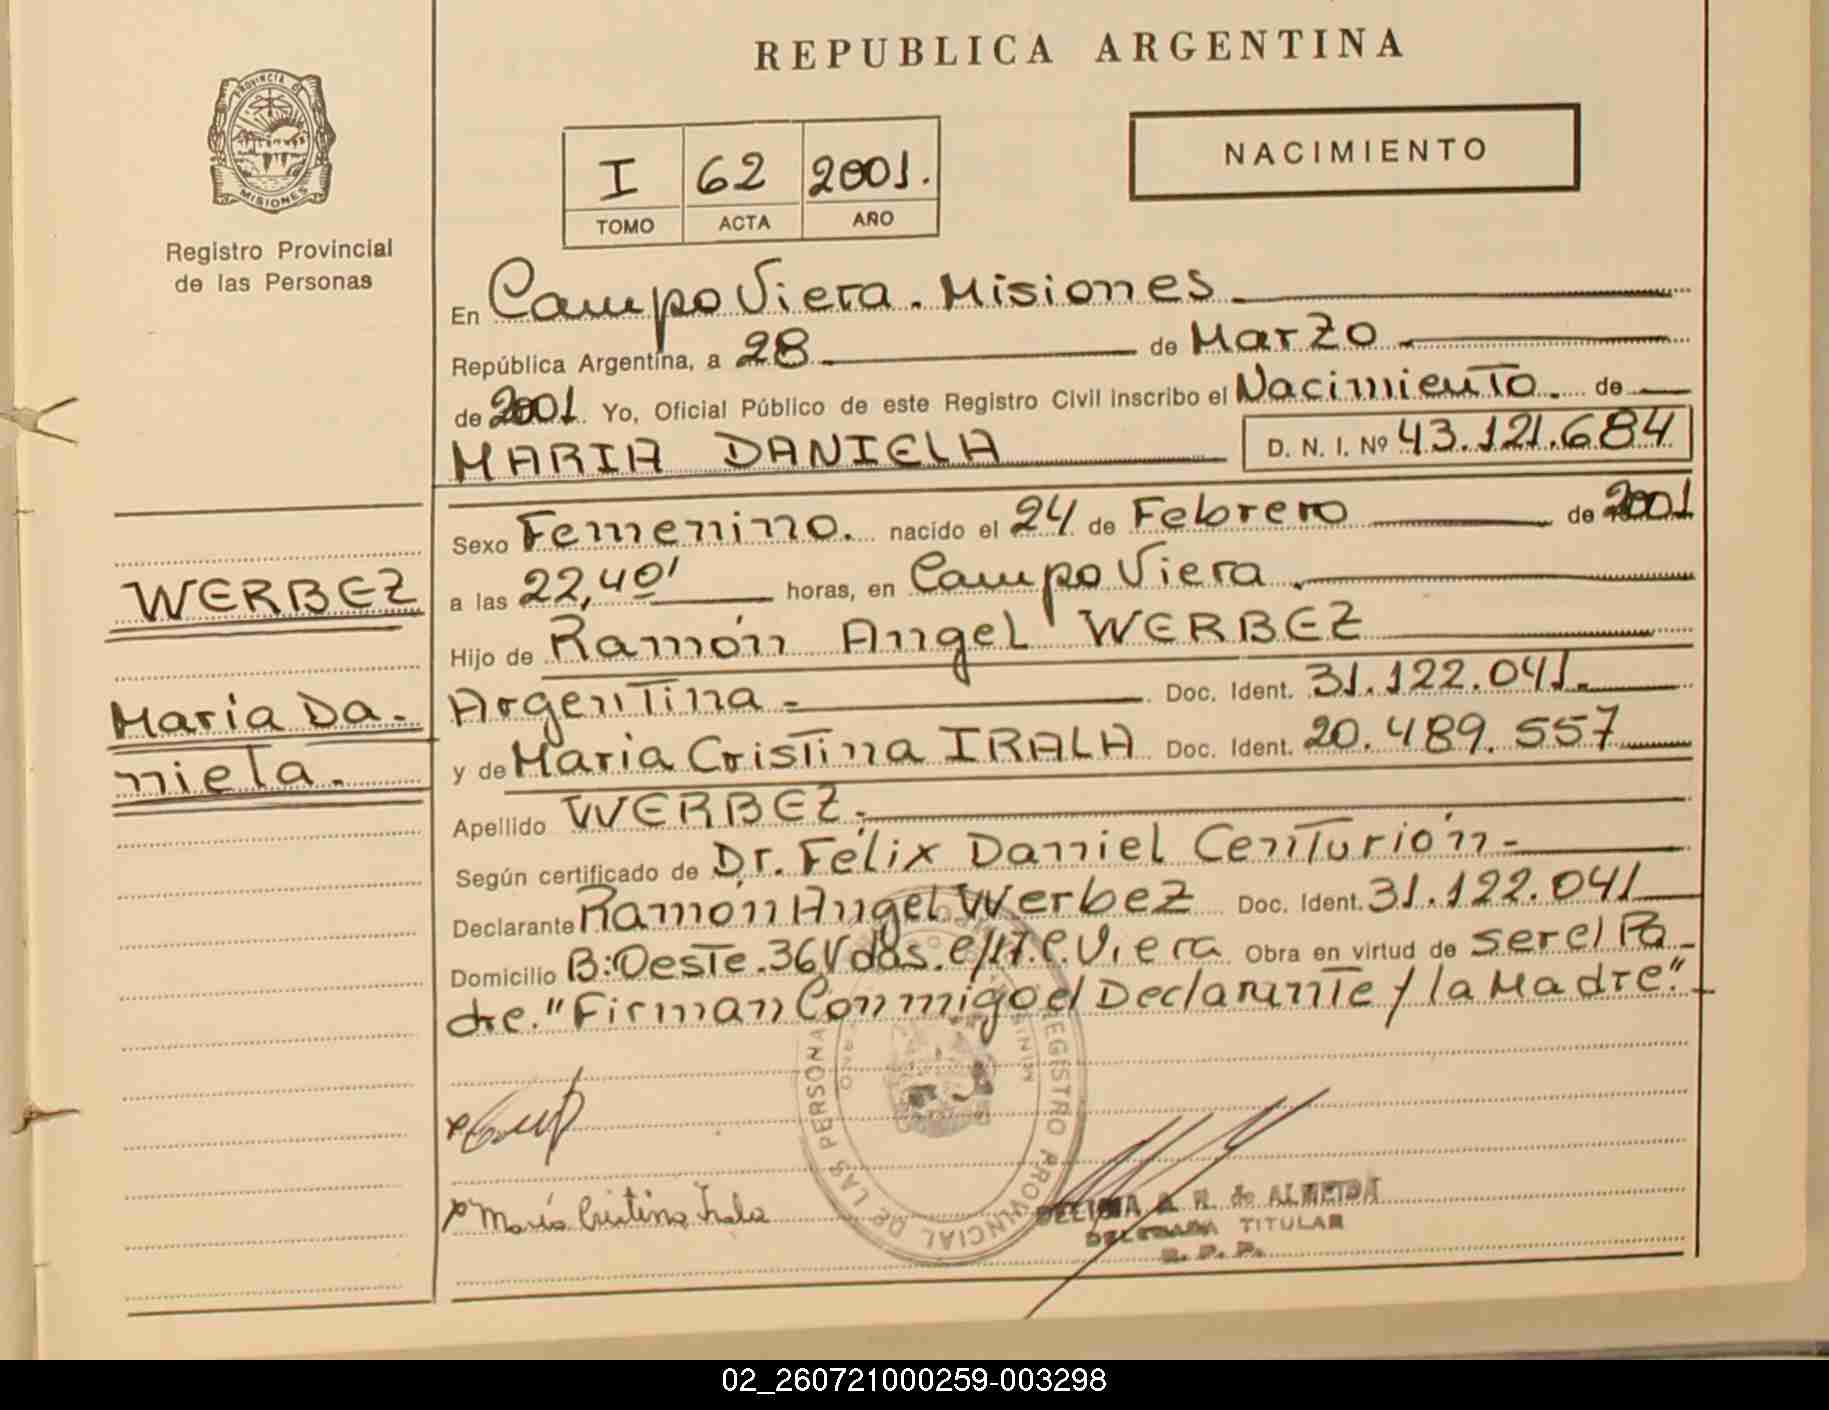 REPUBLICA ARGENTINA
PROVINCIA DE
MISIONES
Registro Provincial
de las Personas
I 62 2001.
TOMO ACTA AÑO
NACIMIENTO
En Campo Viera. Misiones
República Argentina, a 28 de Marzo
de 2001 Yo, Oficial Público de este Registro Civil inscribo el Nacimiento. de
MARIA DANIELA D. N. I. Nº 43.121.684
Sexo Femenino. nacido el 24 de Febrero de 2001
a las 22,40' horas, en Campo Viera.
Hijo de Ramón Angel WERBEZ
Argentina Doc. Ident. 31.122.041.
y de Maria Cristina IRALA Doc. Ident. 20.489.557
Apellido WERBEZ.
Según certificado de Dr. Félix Daniel Centurión
Declarante Ramón Angel Werbez Doc. Ident. 31.122.041
Domicilio B: Oeste. 36 Vdas. e/17. C. Viera Obra en virtud de ser el Pa-
dre. "Firman Conmigo el Declarante y la Madre".
WERBEZ
Maria Da-
niela.
REGISTRO PROVINCIAL DE LAS PERSONA
María Cristina Irala
A. R. de ALMEIDA
DELEGADA TITULAR
R. P. P.
02_260721000259-003298